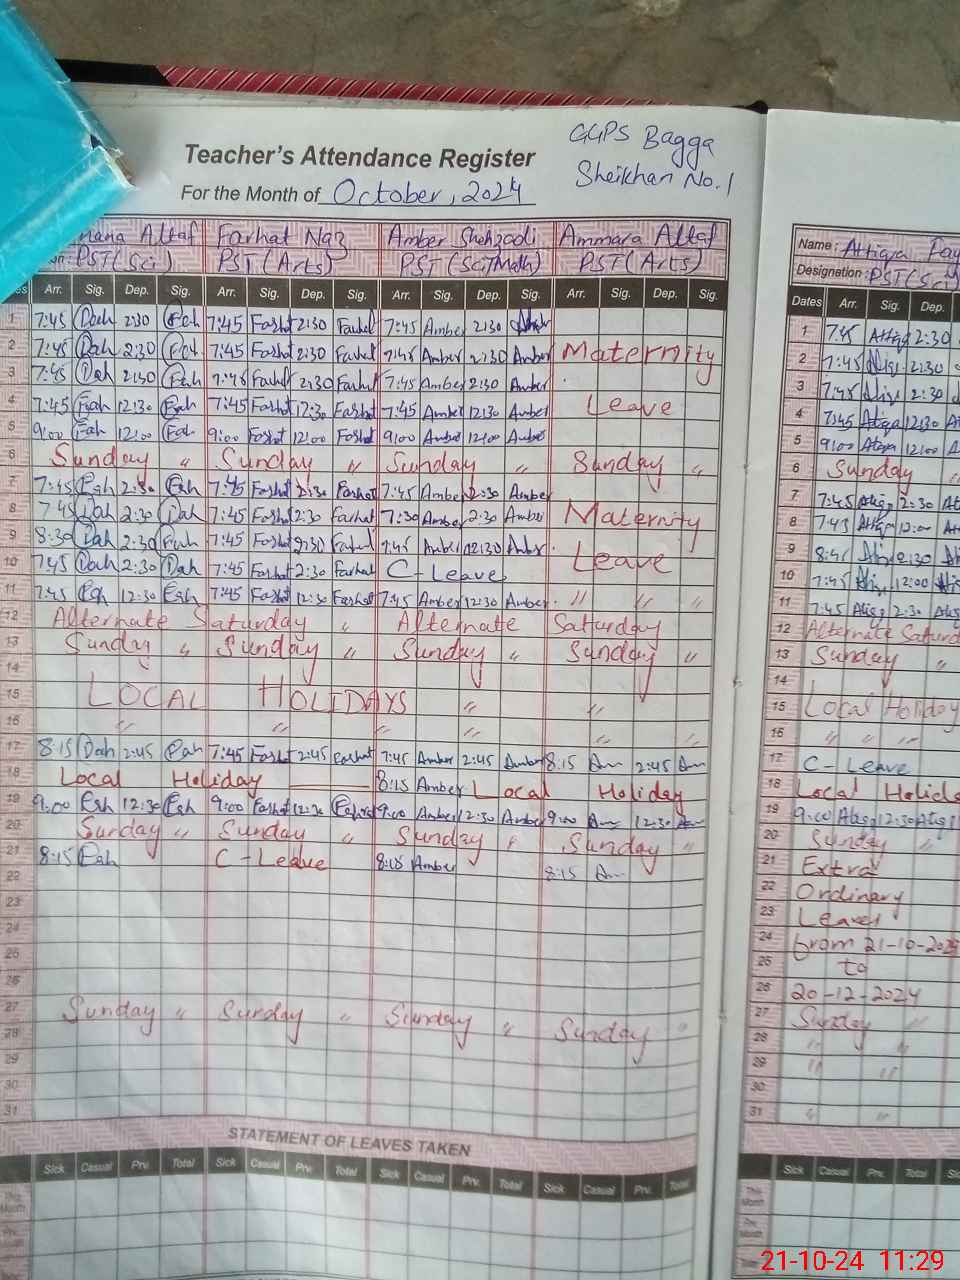 GGPS Bagga
Sheikhan No.1
Teacher's Attendance Register
For the Month of October, 2024
Altaf Farhat Naz Amber Shehzadi Ammara Altaf
PST(Sci) PST(Arts) PST(Sci/Math) PST(Arts)
Arr. Sig. Dep. Sig. Arr. Sig. Dep. Sig. Arr. Sig. Dep. Sig. Arr. Sig. Dep. Sig.
1 7:45 2:30 7:45 Farhat 2:30 Farhat 7:45 Amber 2:30
2 7:45 2:30 7:45 Farhat 2:30 Farhat 7:45 Amber 2:30 Amber Maternity
3 7:45 2:30 7:45 Farhat 2:30 Farhat 7:45 Amber 2:30 Amber
4 7:45 12:30 7:45 Farhat 12:30 Farhat 7:45 Amber 12:30 Amber Leave
5 9:00 12:00 9:00 Farhat 12:00 Farhat 9:00 Amber 12:00 Amber
6 Sunday " Sunday " Sunday " Sunday "
7 7:45 2:30 7:45 Farhat 2:30 Farhat 7:45 Amber 2:30 Amber
8 7:45 2:30 7:45 Farhat 2:30 Farhat 7:30 Amber 2:30 Amber Maternity
9 8:30 2:30 7:45 Farhat 2:30 Farhat 7:45 Amber 2:30 Amber Leave
10 7:45 2:30 7:45 Farhat 2:30 Farhat C-Leave
11 7:45 12:30 7:45 Farhat 12:30 Farhat 7:45 Amber 12:30 Amber " " "
12 Alternate Saturday " Alternate Saturday
13 Sunday " Sunday " Sunday " Sunday "
14
15 LOCAL HOLIDAYS " "
16 " " " " "
17 8:15 2:45 7:45 Farhat 2:45 Farhat 7:45 Amber 2:45 Amber 8:15 2:45
18 Local Holiday 8:15 Amber Local Holiday
19 9:00 12:30 9:00 Farhat 12:30 Farhat 9:00 Amber 12:30 Amber 9:00 12:30
20 Sunday " Sunday " Sunday " Sunday "
21 8:15 C-Leave 8:15 Amber 8:15
22
23
24
25
26
27 Sunday " Sunday " Sunday " Sunday "
28
29
30
31
STATEMENT OF LEAVES TAKEN
Sick Casual Prv. Total Sick Casual Prv. Total Sick Casual Prv. Total Sick Casual Prv. Total
Name: Attiqa
Designation: PST(Sci)
Dates Arr. Sig. Dep.
1 7:45 Attiqa 2:30
2 7:45 2:30
3 7:45 2:30
4 7:45 Atiqa 12:30
5 9:00 Atiqa 12:00
6 Sunday "
7 7:45 Atiq 2:30
8 7:45 Attiqa 12:00
9 8:45 2:30
10 7:45 12:00
11 7:45 Atiq 2:30 Atiq
12 Alternate Saturd
13 Sunday "
14
15 Local Holiday
16 " " "
17 C-Leave
18 Local Holid
19 9:00 Atiq 12:30 Atiq
20 Sunday "
21 Extra
22 Ordinary
23 Leaves
24 from 21-10-2024
25 to
26 20-12-2024
27 Sunday "
28 " "
29 " "
30
31 " "
Sick Casual Prv. Total Sick
This Month
Prv. Month
Total
21-10-24 11:29